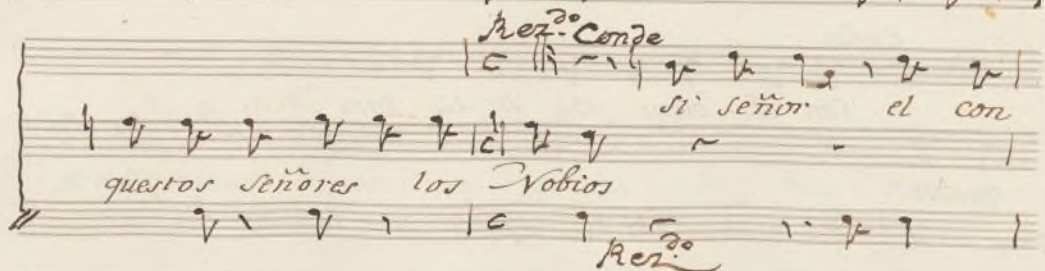 Rez.do Conde
si señor el con
questos señores los Nobios
Rez.do